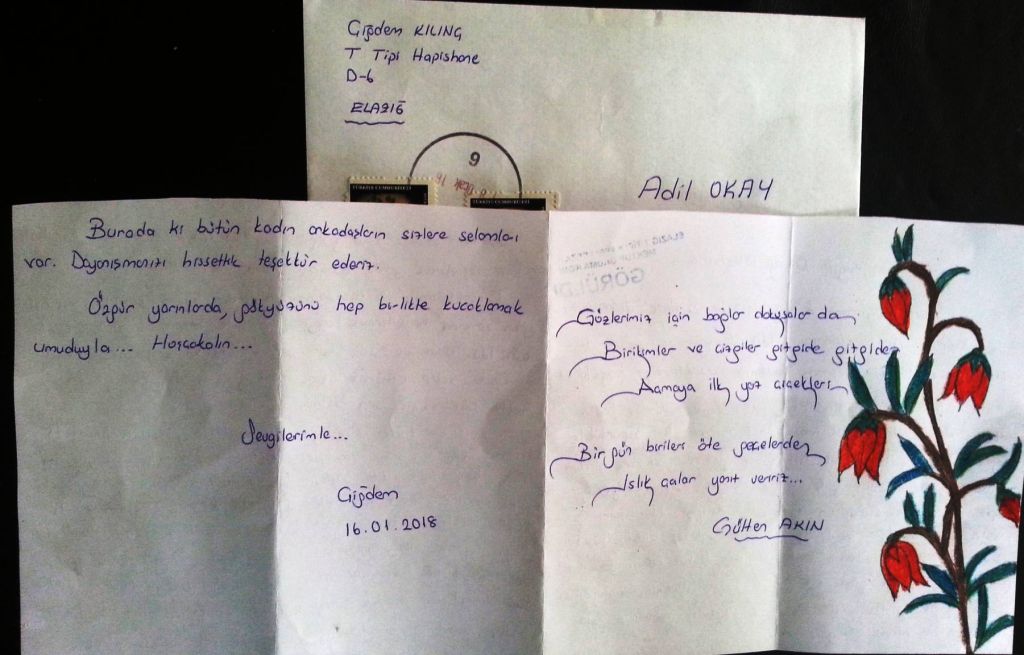 Çiğdem KILINÇ
T Tipi Hapishane
D-6
ELAZIĞ
9
TÜRKİYE CUMHURİYETİ
TÜRKİYE CUMHURİYETİ
Adil OKAY
Burada ki bütün kadın arkadaşların sizlere selamları
var. Dayanışmanızı hissettik teşekkür ederiz.
Özgür yarınlarda, gökyüzünü hep birlikte kucaklamak
umuduyla... Hoşçakalın...
Sevgilerimle...
Çiğdem
16.01.2018
GÖRÜLDÜ
Gözlerimiz için bağlar dokusalar da
Birikimler ve çizgiler gitgide gitgide
Açmaya ilk yaz çiçekleri
Bir gün birileri öte geçelerden
Islık çalar yanıt veririz...
Gülten AKIN